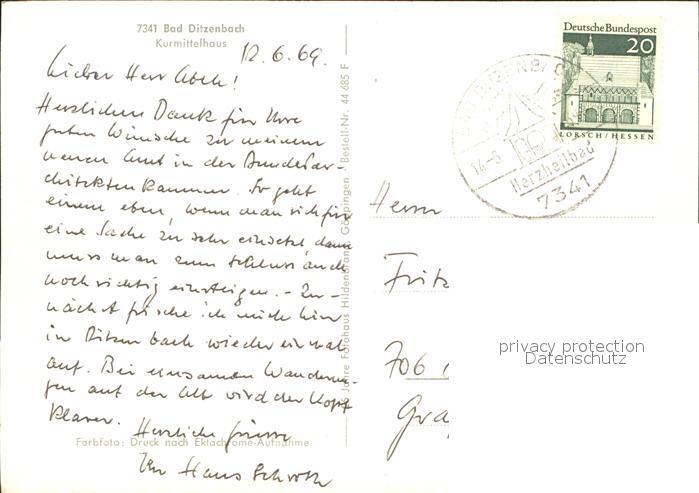 7341 Bad Ditzenbach
Kurmittelhaus
12.6.69.
Lieber Herr
Herzlichen Dank für Ihre
guten Wünsche zu meinem
neuen Amt in der Bundesar-
chitektenkammer. So geht
einem eben, wenn man sich für
eine Sache zu sehr einsetzt, dann
muss man zum Schluss auch
noch richtig einsteigen. - Zu-
nächst frische ich mich hier
in Ditzenbach wieder einmal
auf. Bei einsamen Wanderun-
gen auf der Alb wird der Kopf
klarer.
Herzliche Grüsse
Ihr Hans Schroth
Farbfoto: Druck nach Ektachrome-Aufnahme
Jahre Fotohaus Hildenbrand Göppingen Bestell-Nr. 44 685 F
Deutsche Bundespost
20
LORSCH/HESSEN
BAD DITZENBACH
14.-6
Herzheilbad
7341
Herrn
Fritz
706
Gra
privacy protection
Datenschutz